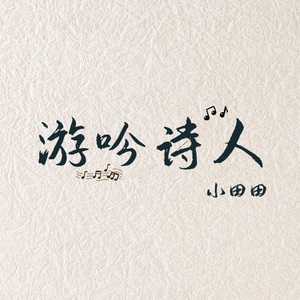 游吟诗人
小田田